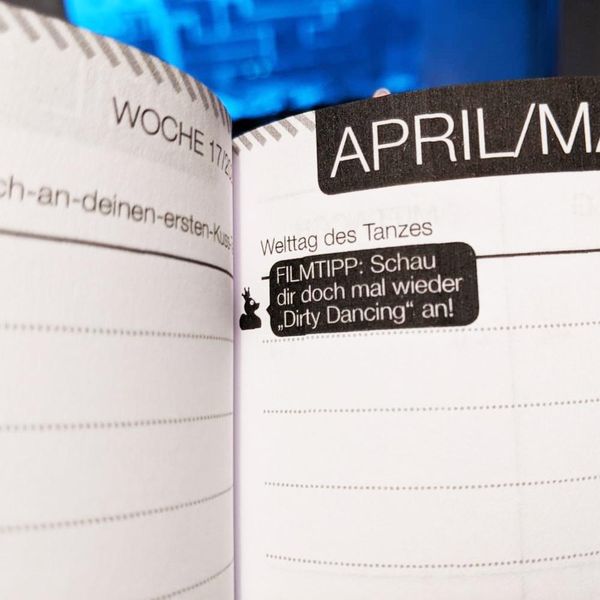 WOCHE 17/2
ch-an-deinen-ersten-Kuss-
APRIL/MA
Welttag des Tanzes
FILMTIPP: Schau
dir doch mal wieder
„Dirty Dancing“ an!